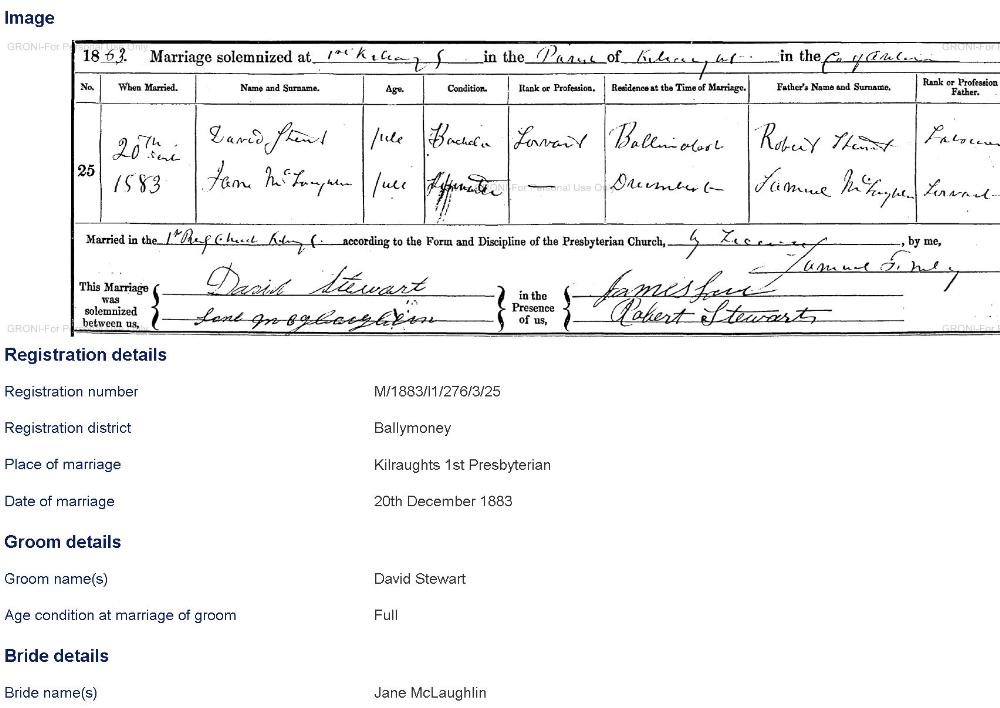 Image
GRONI-For Personal Use Only
1883. Marriage solemnized at 1st Kilraughts in the Parish of Kilraughts in the Co of Antrim
No. When Married. Name and Surname. Age. Condition. Rank or Profession. Residence at the Time of Marriage. Father's Name and Surname. Rank or Profession Father.
20th David Stewart full Bachelor Servant Robert Stewart Labourer
25
1883 Jane McLaughlin full Spinster — GRONI-For Personal Use On Samuel McLaughlin Servant
Married in the 1st Presb Church according to the Form and Discipline of the Presbyterian Church, by License, by me,
Samuel Finlay
This Marriage was solemnized between us, David Stewart in the Presence of us, James
Jane Robert Stewart
GRONI-For P GRONI-For
Registration details
Registration number M/1883/I1/276/3/25
Registration district Ballymoney
Place of marriage Kilraughts 1st Presbyterian
Date of marriage 20th December 1883
Groom details
Groom name(s) David Stewart
Age condition at marriage of groom Full
Bride details
Bride name(s) Jane McLaughlin